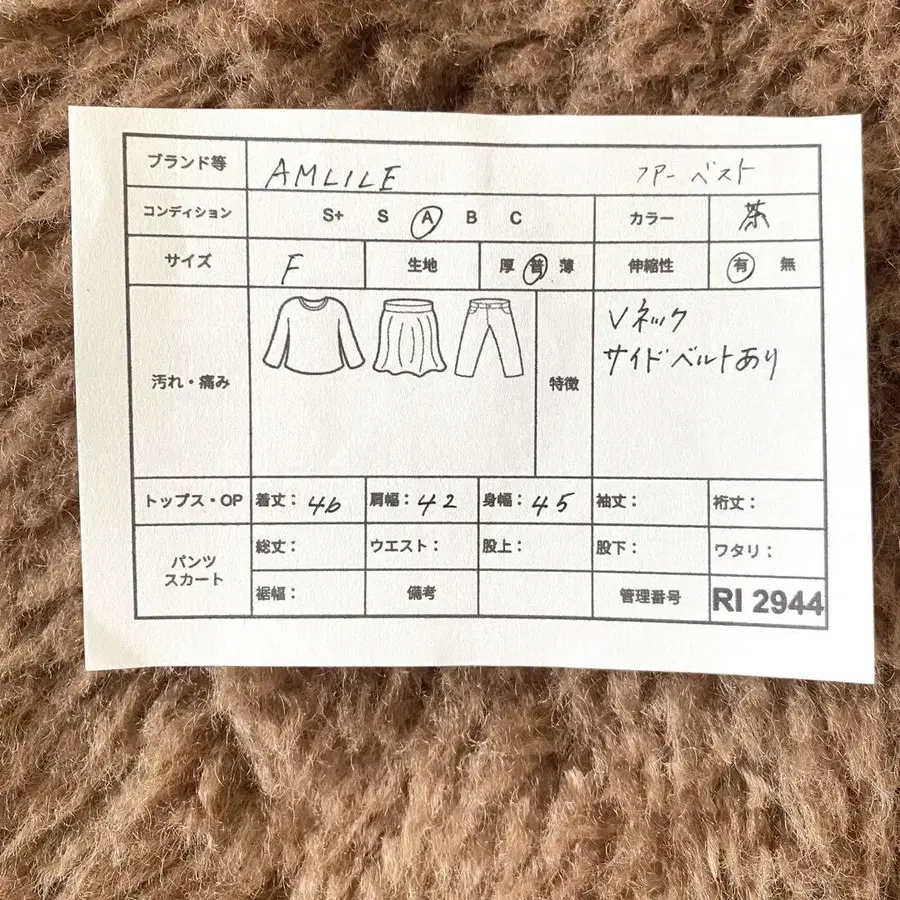 ブランド等 AMLILE ファーベスト
コンディション S+ S A B C カラー 茶
サイズ F 生地 厚 普 薄 伸縮性 有 無
汚れ・痛み 特徴 Vネック
サイドベルトあり
トップス・OP 着丈: 46 肩幅: 42 身幅: 45 袖丈: 裄丈:
パンツ
スカート
総丈: ウエスト: 股上: 股下: ワタリ:
裾幅: 備考 管理番号 RI 2944